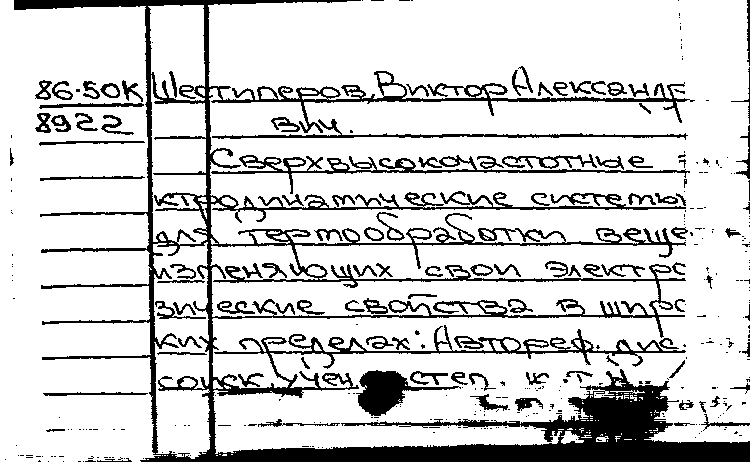 86-50К Шестиперов, Виктор Александр
8922 вич.
Сверхвысокочастотные
ктродинамические системы
для термообработки веще
изменяющих свои электро
зические свойства в широ
ких пределах: Автореф. дис.
соиск. учен. степ. к.т.н.